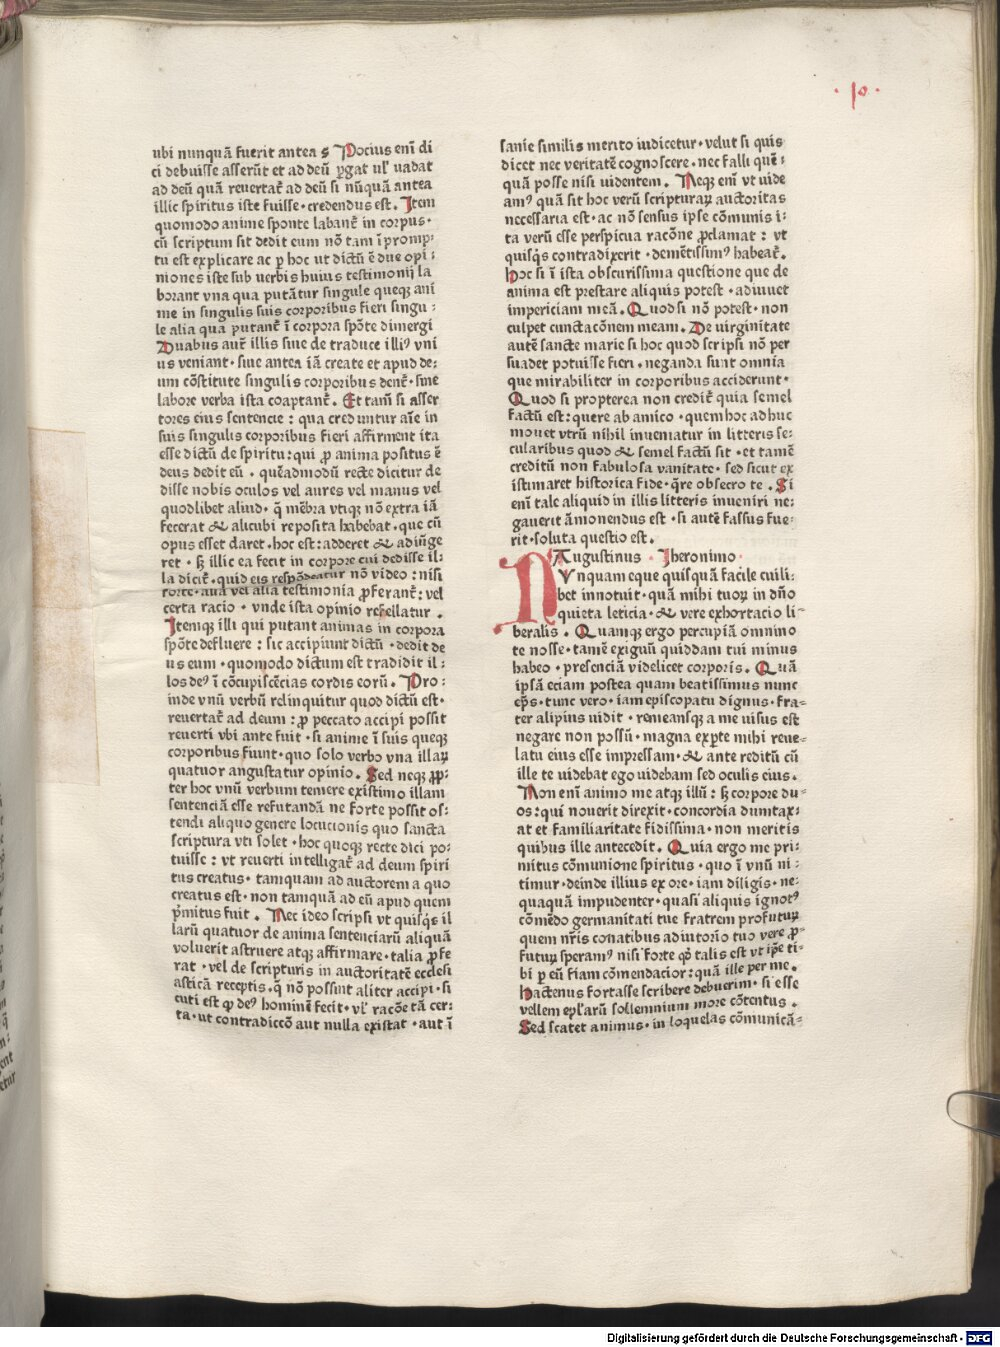 ·10·
ubi nunquā fuerit antea ꝫ Pocius enī di
ci debuisse asserūt et ad deū ꝑgat ul' uadat
ad deū quā reuertat᷑ ad deū si nūquā antea
illic spiritus iste fuisse · credendus est . Item
quomodo anime sponte labant᷑ in corpus ·
cū scriptum sit dedit eum nō tam ī promp:
tu est explicare ac ꝑ hoc ut dictū ē due opi :
niones iste sub uerbis huius testimonij la
borant vna qua putātur singule queqꝫ ani
me in singulis suis corporibus fieri singu :
le alia qua putant᷑ ī corpora spōte dimergi
Duabus aut᷑ illis siue de traduce illiꝰ vni
us veniant · siue antea iā create et apud de:
um cōstitute singulis corporibus dent᷑ · sine
labore verba ista coaptant᷑ . Et tamē si asser
tores eius sentencie : qua creduntur aīe in
suis singulis corporibus fieri affirment ita
esse dictū de spiritu : qui ꝓ anima positus ē
deus dedit eū . quēadmodū recte dicitur de
disse nobis oculos vel aures vel manus vel
quodlibet aliud · q̄ mēbra vtiqꝫ nō extra iā
fecerat & alicubi reposita habebat · que cū
opus esset daret . hoc est : adderet & adiūge
ret · sꝫ illic ea fecit in corpore cui dedisse il:
la dicit᷑ · quid eis respōdeatur nō video : nisi
forte · aut vel alia testimonia ꝓferant᷑ : vel
certa racio · vnde ista opinio refellatur .
Itemqꝫ illi qui putant animas in corpora
spōte defluere : sic accipiunt dictū · dedit de
us eum · quomodo dictum est tradidit il :
los deꝰ ī cōcupiscēcias cordis eorū . Pro :
inde vnū verbū relinquitur quod dictū est ·
reuertat᷑ ad deum : ꝓ peccato accipi possit
reuerti vbi ante fuit · si anime ī suis queqꝫ
corporibus fiunt · quo solo verbo vna illaꝝ
quatuor angustatur opinio . Sed neqꝫ ꝓp:
ter hoc vnū verbum temere existimo illam
sentenciā esse refutandā ne forte possit os:
tendi aliquo genere locucionis quo sancta
scriptura vti solet · hoc quoqꝫ recte dici po:
tuisse : vt reuerti intelligat᷑ ad deum spiri
tus creatus · tamquam ad auctorem a quo
creatus est · non tamquā ad eū apud quem
pͥmitus fuit . Nec ideo scripsi vt quisqͥs il
larū quatuor de anima sentenciarū aliquā
voluerit astruere atqꝫ affirmare · talia ꝓfe
rat · vel de scripturis in auctoritatē ecclesi
asticā receptis · q̄ nō possint aliter accipi · si
cuti est qꝫ deꝰ hominē fecit · vl' racōe tā cer:
ta · ut contradiccō aut nulla existat · aut ī
sanie similis merito iudicetur · velut si quis
dicet nec veritatē cognoscere · nec falli quē :
quā posse nisi uidentem . Neqꝫ enī vt uide
amꝰ quā sit hoc verū scripturaꝝ auctoritas
necessaria est · ac nō sensus ipse cōmunis i :
ta verū esse perspicua racōne ꝓclamat : vt
quisqͥs contradixerit · demētissimꝰ habeat᷑.
Hoc si ī ista obscurissima questione que de
anima est prestare aliquis potest · adiuuet
impericiam meā . Quod si nō potest · non
culpet cunctacōnem meam . De uirginitate
autē sancte marie si hoc quod scripsi nō per
suadet potuisse fieri . neganda sunt omnia
que mirabiliter in corporibus acciderunt ·
Quod si propterea non credit᷑ quia semel
factū est : quere ab amico · quem hoc adhuc
mouet vtrū nihil inueniatur in litteris se:
cularibus quod & semel factū sit · et tamē
creditū non fabulosa vanitate · sed sicut ex
istimaret historica fide · q̄re obsecro te . Si
enī tale aliquid in illis litteris inueniri ne:
gauerit āmonendus est · si autē fassus fue:
rit · soluta questio est .
Augustinus · Iheronimo ·
NVnquam eque quisquā facile cuili:
bet innotuit · quā mihi tuoꝝ in dn̄o
quieta leticia · & vere exhortacio li
beralis . Quamqꝫ ergo percupiā omnino
te nosse · tamē exiguū quiddam tui minus
habeo · presenciā videlicet corporis . Quā
ipsā eciam postea quam beatissimus nunc
ep̄s · tunc vero · iam episcopatu dignus · fra=
ter alipius uidit · remeansqꝫ a me uisus est
negare non possū · magna exꝑte mihi reue=
latu eius esse impressam · & ante reditū cū
ille te uidebat ego uidebam sed oculis eius .
Non enī animo me atqꝫ illū : sꝫ corpore du=
os : qui nouerit direxit · concordia dumtax:
at et familiaritate fidissima · non meritis
quibus ille antecedit . Quia ergo me pri:
mitus cōmunione spiritus · quo ī vnū ni:
timur · deinde illius ex ore · iam diligis · ne:
quaquā impudenter · quasi aliquis ignotꝰ
cōmēdo germanitati tue fratrem profutuꝝ
quem nr̄is conatibus adiutorio tuo vere ꝓ=
futuꝝ speramꝰ nisi forte qꝫ talis est vt ip̄e ti=
bi ꝑ eū fiam cōmendacior : quā ille per me .
Hactenus fortasse scribere debuerim · si esse
vellem epl'arū sollemnium more cōtentus .
Sed scatet animus · in loquelas cōmunicā=
Digitalisierung gefördert durch die Deutsche Forschungsgemeinschaft · DFG